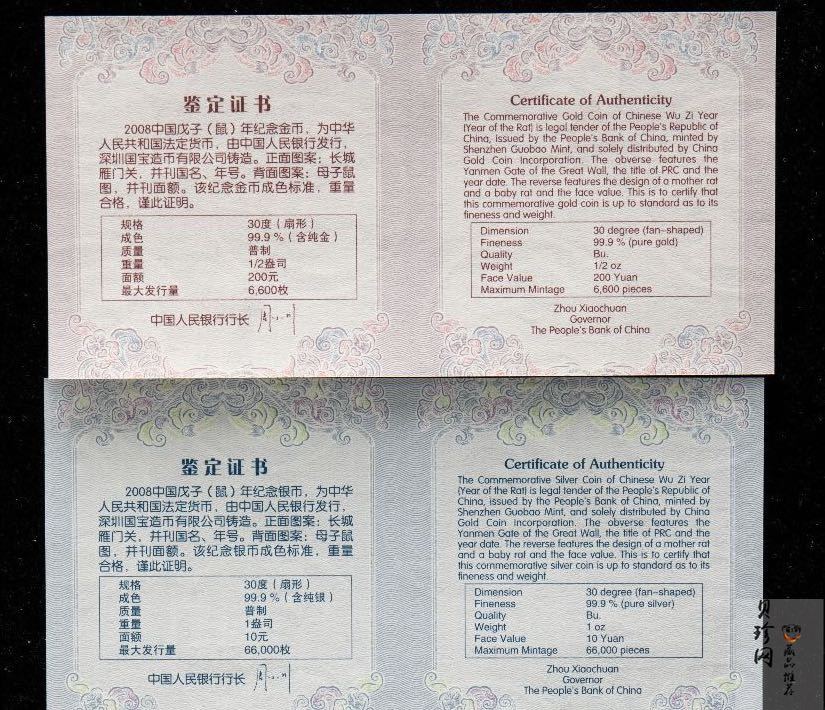 鉴定证书
2008中国戊子（鼠）年纪念金币，为中华
人民共和国法定货币，由中国人民银行发行，
深圳国宝造币有限公司铸造。正面图案：长城
雁门关，并刊国名、年号。背面图案：母子鼠
图，并刊面额。该纪念金币成色标准，重量
合格，谨此证明。
规格 30度（扇形）
成色 99.9％（含纯金）
质量 普制
重量 1/2盎司
面额 200元
最大发行量 6,600枚
中国人民银行行长
Certificate of Authenticity
The Commemorative Gold Coin of Chinese Wu Zi Year
(Year of the Rat) is legal tender of the People's Republic of
China, issued by the People's Bank of China, minted by
Shenzhen Guobao Mint, and solely distributed by China
Gold Coin Incorporation. The obverse features the
Yanmen Gate of the Great Wall, the title of PRC and the
year date. The reverse features the design of a mother rat
and a baby rat and the face value. This is to certify that
this commemorative gold coin is up to standard as to its
fineness and weight.
Dimension 30 degree (fan-shaped)
Fineness 99.9 % (pure gold)
Quality Bu.
Weight 1/2 oz
Face Value 200 Yuan
Maximum Mintage 6,600 pieces
Zhou Xiaochuan
Governor
The People's Bank of China
鉴定证书
2008中国戊子（鼠）年纪念银币，为中华
人民共和国法定货币，由中国人民银行发行，
深圳国宝造币有限公司铸造。正面图案：长城
雁门关，并刊国名、年号。背面图案：母子鼠
图，并刊面额。该纪念银币成色标准，重量
合格，谨此证明。
规格 30度（扇形）
成色 99.9％（含纯银）
质量 普制
重量 1盎司
面额 10元
最大发行量 66,000枚
中国人民银行行长
Certificate of Authenticity
The Commemorative Silver Coin of Chinese Wu Zi Year
(Year of the Rat) is legal tender of the People's Republic of
China, issued by the People's Bank of China, minted by
Shenzhen Guobao Mint, and solely distributed by China
Gold Coin Incorporation. The obverse features the
Yanmen Gate of the Great Wall, the title of PRC and the
year date. The reverse features the design of a mother rat
and a baby rat and the face value. This is to certify that
this commemorative silver coin is up to standard as to its
fineness and weight.
Dimension 30 degree (fan-shaped)
Fineness 99.9 % (pure silver)
Quality Bu.
Weight 1 oz
Face Value 10 Yuan
Maximum Mintage 66,000 pieces
Zhou Xiaochuan
Governor
The People's Bank of China
贝珍网
藏品推荐